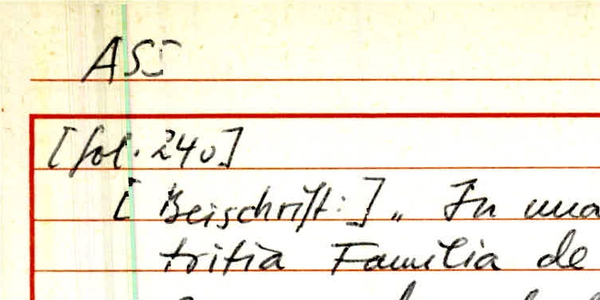 ASS
[fol. 240]
[Beischrift:] „ In una
tritia Familia de